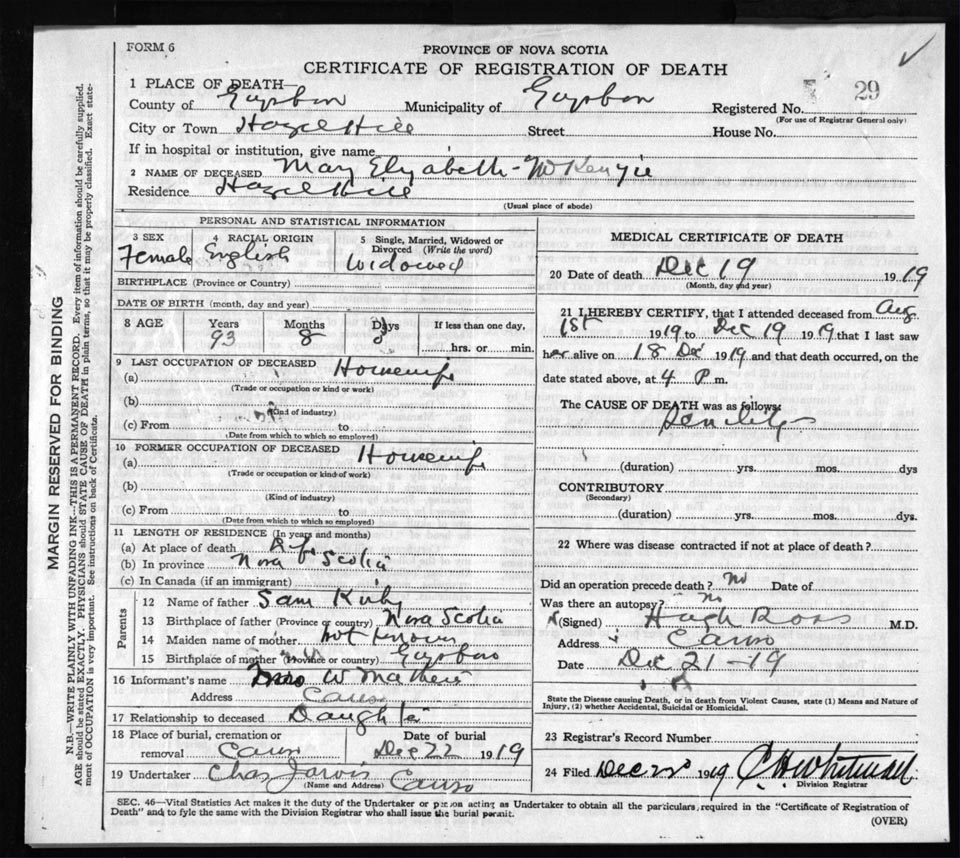 FORM 6
PROVINCE OF NOVA SCOTIA
CERTIFICATE OF REGISTRATION OF DEATH
1 PLACE OF DEATH—
29
County of Guysboro Municipality of Guysboro Registered No.
(For use of Registrar General only)
City or Town Hazel Hill Street House No.
If in hospital or institution, give name
2 NAME OF DECEASED Mary Elizabeth McKenzie
Residence Hazel Hill
(Usual place of abode)
PERSONAL AND STATISTICAL INFORMATION
3 SEX 4 RACIAL ORIGIN 5 Single, Married, Widowed or Divorced (Write the word)
Female English Widowed
BIRTHPLACE (Province or Country)
DATE OF BIRTH (month, day and year)
8 AGE Years Months Days If less than one day,
93 8 hrs. or min.
9 LAST OCCUPATION OF DECEASED
(a) Housewife
(Trade or occupation or kind or work)
(b)
(Kind of industry)
(c) From to
(Date from which to which so employed)
10 FORMER OCCUPATION OF DECEASED
(a) Housewife
(Trade or occupation or kind of work)
(b)
(Kind of industry)
(c) From to
(Date from which to which so employed)
11 LENGTH OF RESIDENCE (In years and months)
(a) At place of death
(b) In province Nova Scotia
(c) In Canada (if an immigrant)
Parents
12 Name of father Sam Kirby
13 Birthplace of father (Province or country) Nova Scotia
14 Maiden name of mother not known
15 Birthplace of mother (Province or country) Guysboro
16 Informant's name Mrs W
Address Canso
17 Relationship to deceased Daughter
18 Place of burial, cremation or removal Canso Date of burial Dec 22 1919
19 Undertaker Chas Jarvis Canso
(Name and Address)
MEDICAL CERTIFICATE OF DEATH
20 Date of death Dec 19 1919
(Month, day and year)
21 I HEREBY CERTIFY, that I attended deceased from Aug
1st 1919 to Dec 19 1919 that I last saw
her alive on 18 Dec 1919 and that death occurred, on the
date stated above, at 4 P m.
The CAUSE OF DEATH was as follows:
Senility
(duration) yrs. mos. dys
CONTRIBUTORY
(Secondary)
(duration) yrs. mos. dys.
22 Where was disease contracted if not at place of death?
Did an operation precede death? no Date of
Was there an autopsy? no
(Signed) Hugh Ross M.D.
Address Canso
Date Dec 21-19
State the Disease causing Death, or in death from Violent Causes, state (1) Means and Nature of
Injury, (2) whether Accidental, Suicidal or Homicidal.
23 Registrar's Record Number
24 Filed Dec 1919 Whitman
Division Registrar
SEC. 46—Vital Statistics Act makes it the duty of the Undertaker or person acting as Undertaker to obtain all the particulars, required in the "Certificate of Registration of
Death" and to fyle the same with the Division Registrar who shall issue the burial permit.
(OVER)
MARGIN RESERVED FOR BINDING
N.B.—WRITE PLAINLY WITH UNFADING INK—THIS IS A PERMANENT RECORD. Every item of information should be carefully supplied.
AGE should be stated EXACTLY. PHYSICIANS should STATE CAUSE OF DEATH in plain terms, so that it may be properly classified. Exact state-
ment of OCCUPATION is very important. See instructions on back of Certificate.